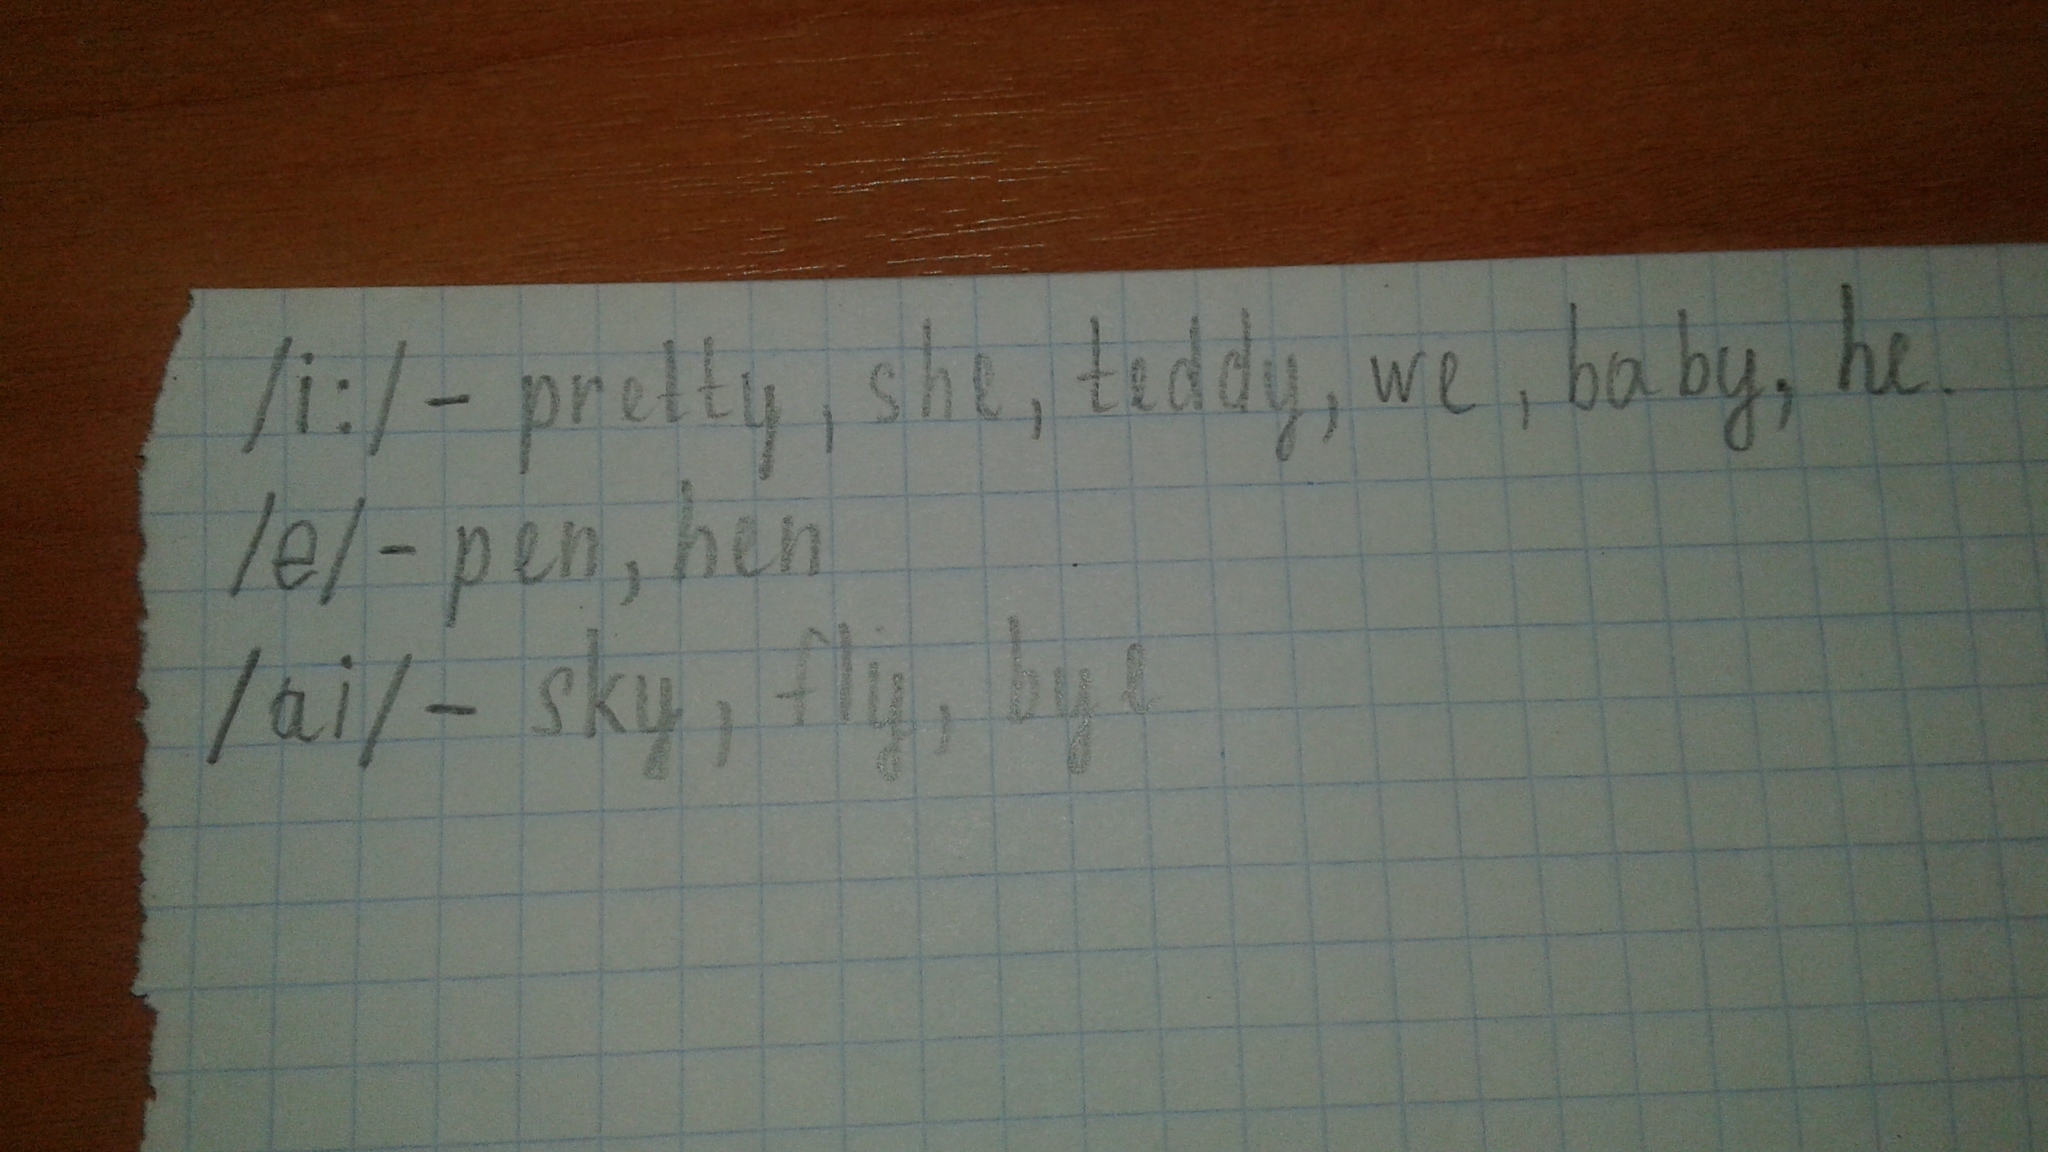 /i:/ - pretty, she, teddy, we, baby, he.
/e/ - pen, hen
/ai/ - sky, fly, bye